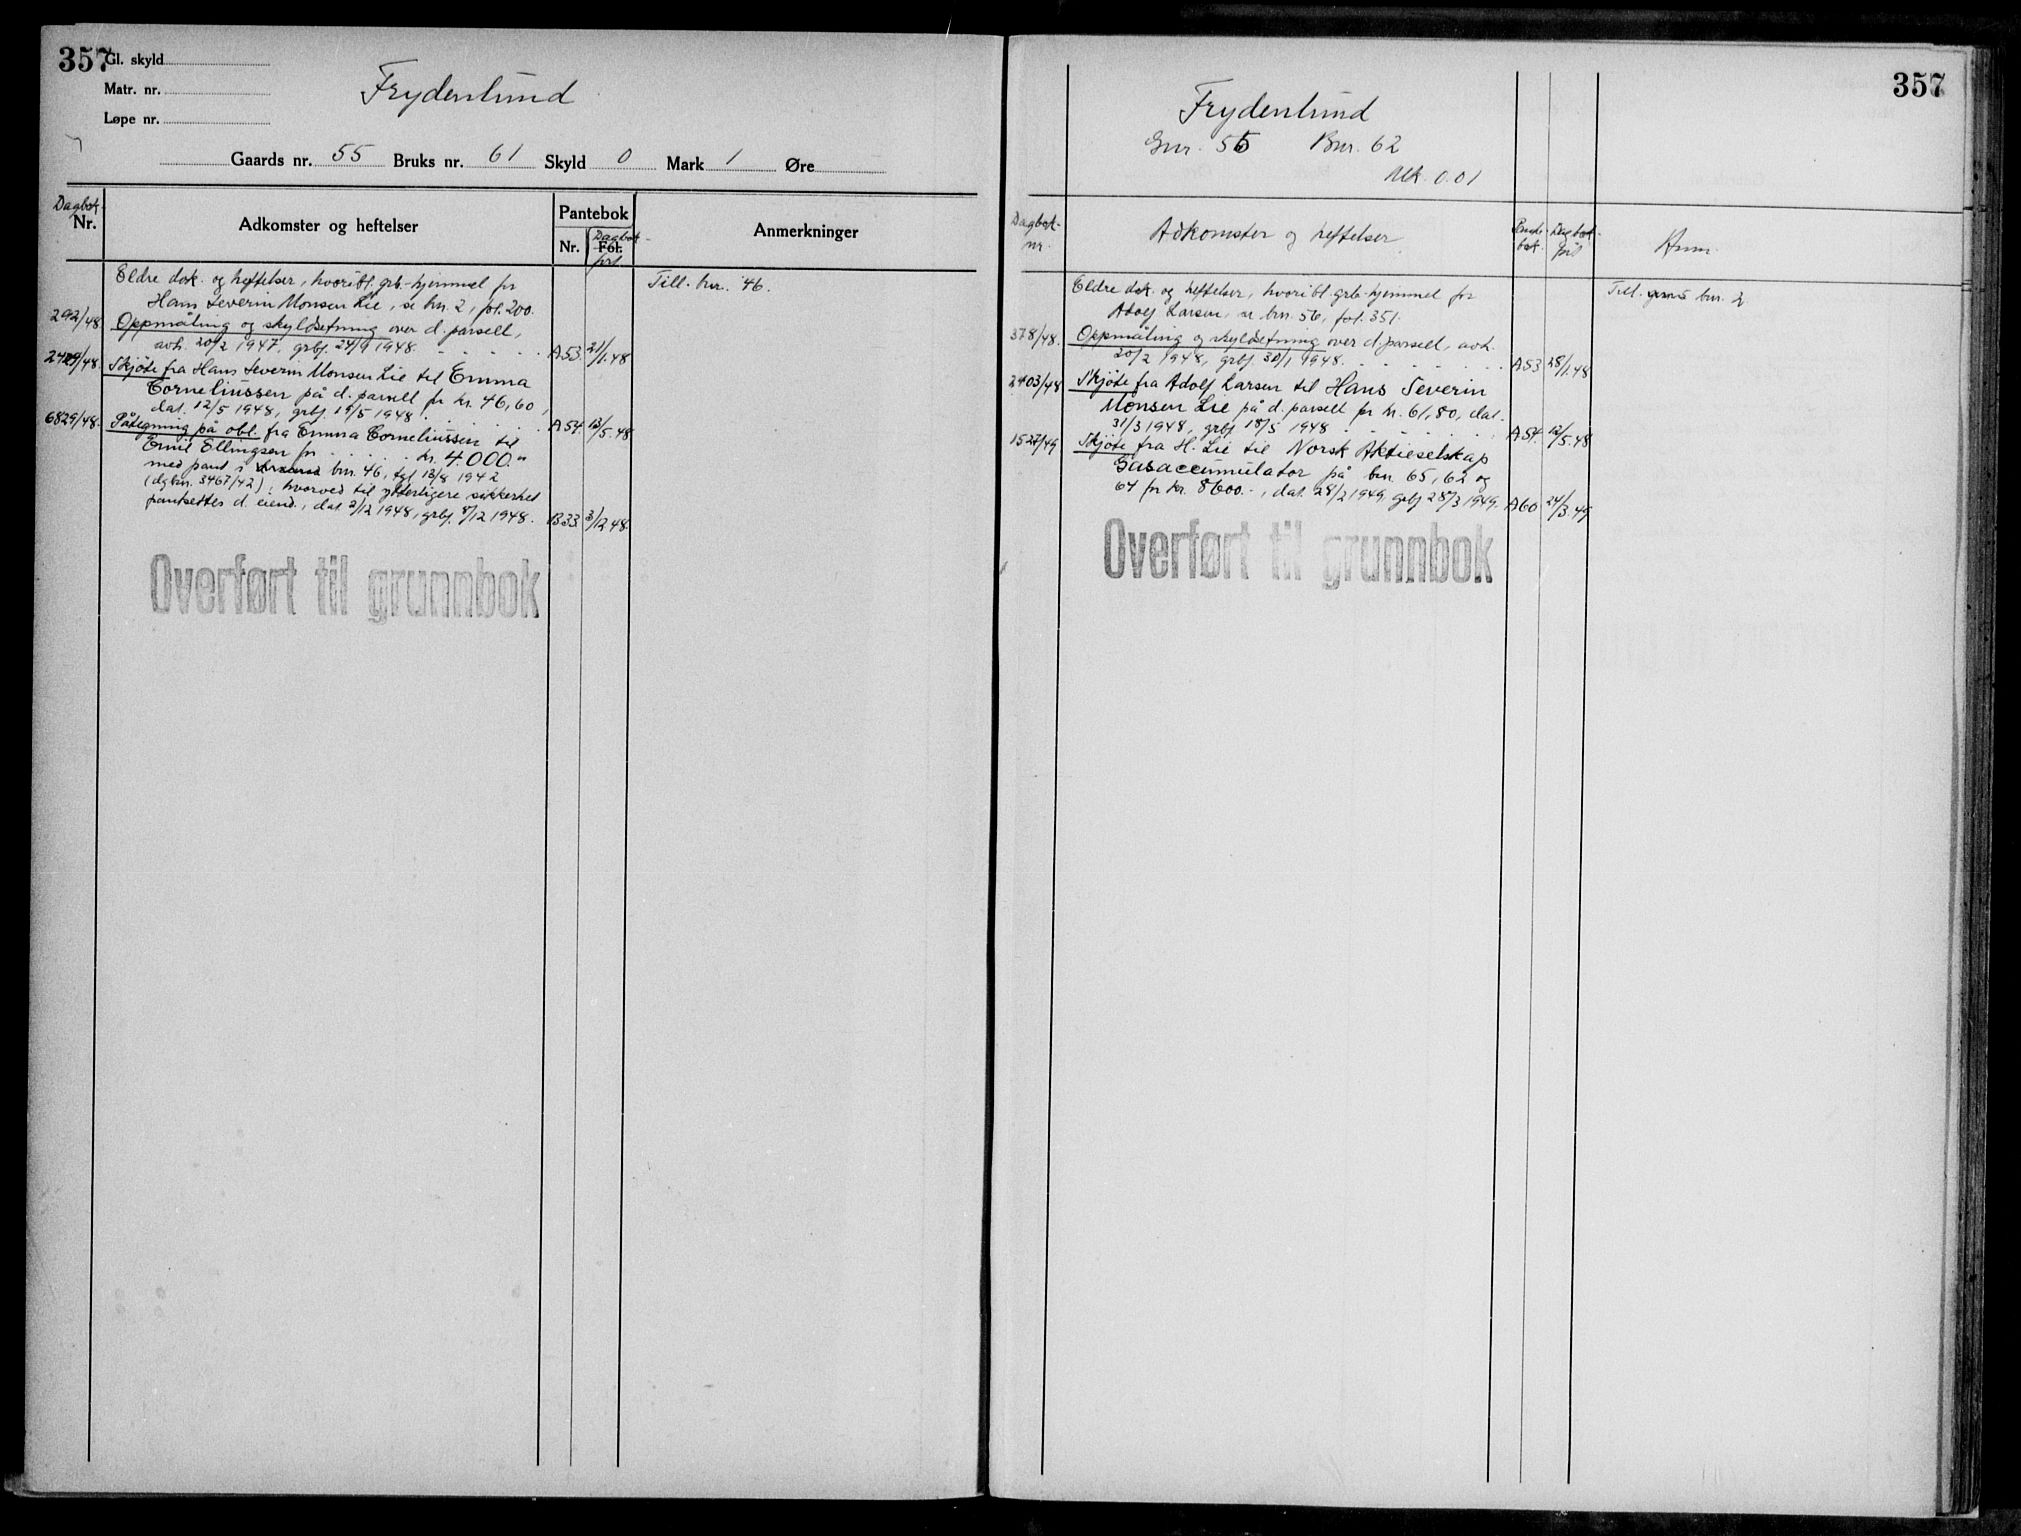 357
Gl. skyld
Matr. nr.
Løpe nr.
Frydenlund
Gaards nr. 55 Bruks nr. 61 Skyld 0 Mark 1 Øre
Dagbok-
Nr.
Adkomster og heftelser
Pantebok
Nr.
Dagbok-
Fol.
ført
Anmerkninger
Eldre dok. og heftelser, hvoribl. grb-hjemmel for
Hans Severin Monsen Lie, se bnr. 2, fol. 200.
Till. bnr. 46.
292/48. Oppmåling og skyldsetning over d. parsell,
avh. 20/2 1947, grbj. 24/9 1948. A53. 21/1.48
/48. Skjöte fra Hans Severin Monsen Lie til Emma
Corneliussen på d. parsell for kr. 46,60,
dat. 12/5 1948, grbj. 19/5 1948. A54. 13/5.48
6829/48. Påtegning på obl. fra Emma Corneliussen til
Emil Ellingsen for kr. 4.000.-
med pant i bnr. 46, tgl 13/8 1942
(dgbnr. 3467/42), hvorved til ytterligere sikkerhet
pantsettes d. eiend., dat. 2/12 1948, grbj. 8/12 1948. B33. 3/12 48.
Overført til grunnbok
357
Frydenlund
Gnr. 55 Bnr. 62
Mk. 0.01
Dagbok-
nr.
Adkomster og heftelser
Pante-
bok.
Dagbok-
ført
Anm.
Eldre dok. og heftelser, hvoribl. grb-hjemmel for
Adolf Larsen, se bnr. 56, fol. 351.
Till. bnr. 2.
378/48. Oppmåling og skyldsetning over d. parsell, avh.
20/2 1948, grbj. 30/1 1948. A53 28/1.48
2403/48 Skjöte fra Adolf Larsen til Hans Severin
Monsen Lie på d. parsell for kr. 61,80, dat.
31/3 1948, grbj 18/5 1948 A54. 12/5.48
1527/49 Skjöte fra H. Lie til Norsk Aktieselskap
Gasaccumulator på bnr. 65, 62 og
64 for kr. 8600.-, dat. 28/2 1949, grbj 28/3 1949. A60 24/3.49
Overført til grunnbok